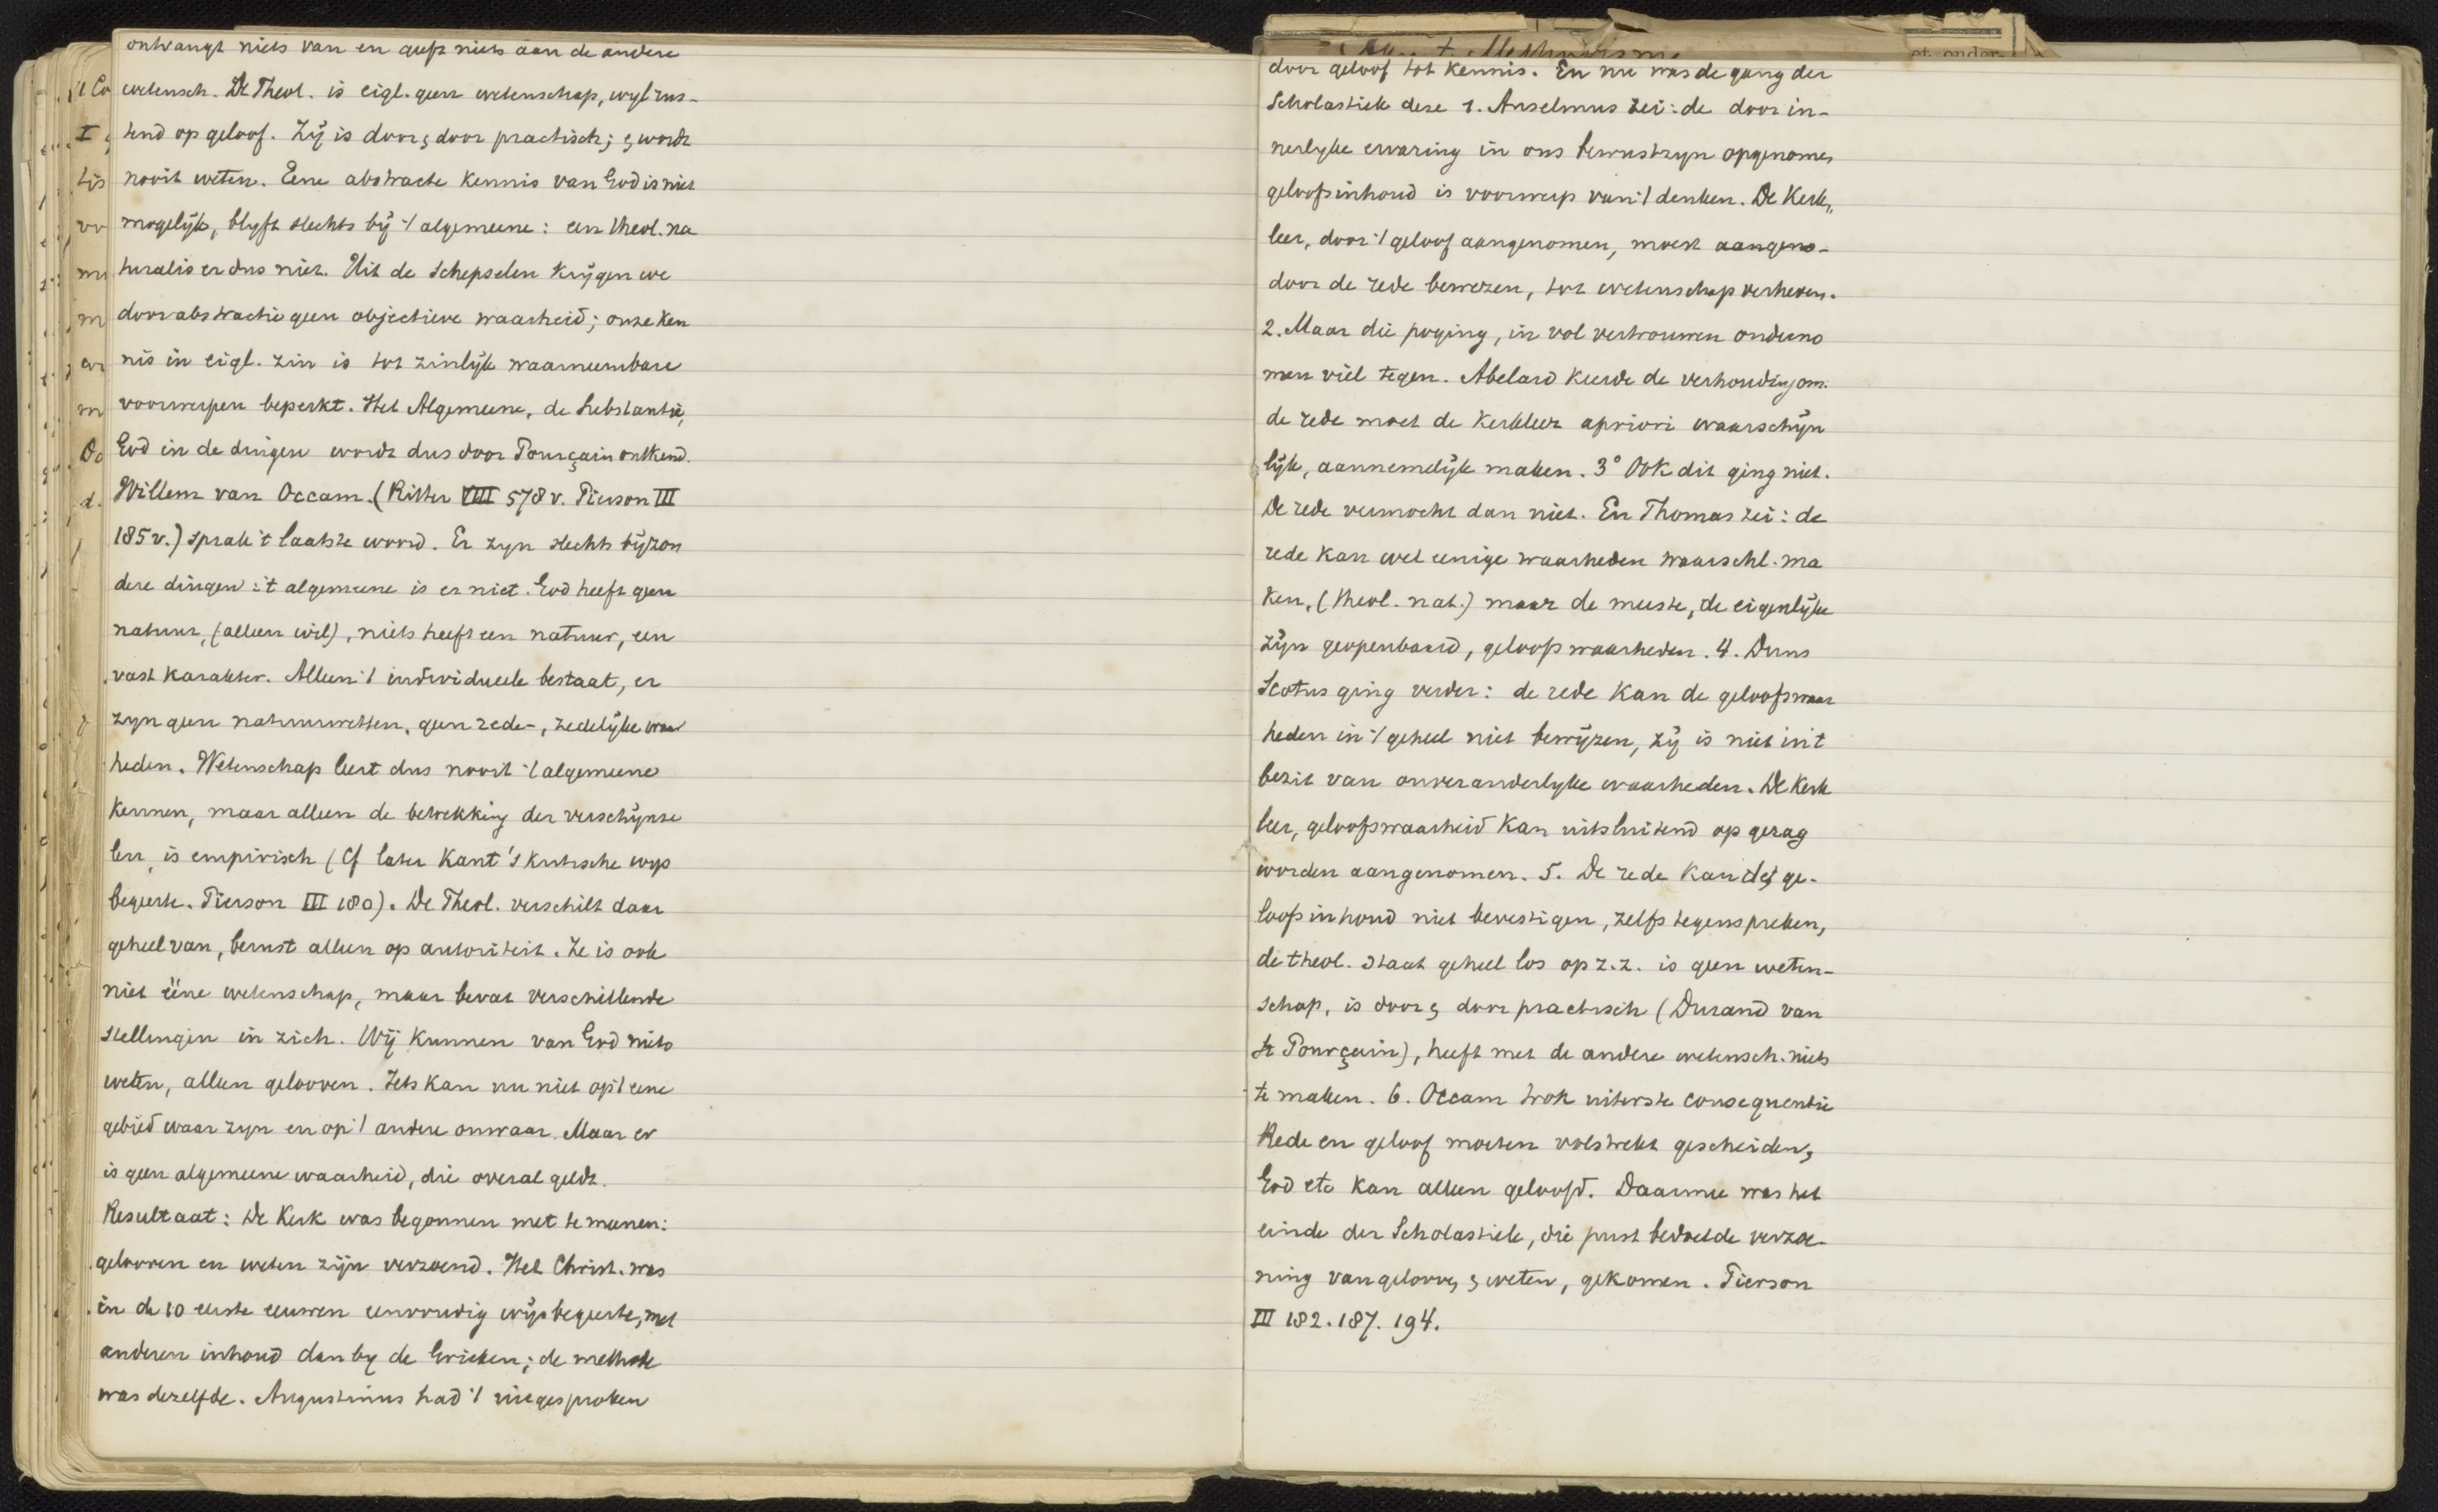 ontvangt niets van en geeft niets aan de andere
wetensch. De Theol. is eigl. geen wetenschap, wyl rus-
tend op geloof. Zij is door & door practisch; & wordt
nooit weten. Eene abstracte kennis van God is niet
mogelijk, blyft slechts bij 't algemeene: een theol. na
turalis er dus niet. Uit de schepselen krijgen we
door abstractie geen objectieve waarheid; onze ken
nis in eigl. zin is tot zinlijk waarneembare
voorwerpen beperkt. Het Algemeene, de substantie,
God in de dingen wordt dus door Pourçain ontkend.
Willem van Occam. (Ritter VIII 578 v. Pierson III
185 v.) sprak 't laatste woord. Er zyn slechts bijzon
dere dingen: 't algemeene is er niet. God heeft geen
natuur, (alleen wil), niets heeft een natuur, een
vast karakter. Alleen 't individueele bestaat, er
zyn geen natuurwetten, geen rede-, zedelijke waar
heden. Wetenschap leert dus nooit 't algemeene
kennen, maar alleen de betrekking der verschijnse
len, is empirisch (Cf later Kant's kritische wys
begeerte. Pierson III 180). De Theol. verschilt daar
geheel van, berust alleen op autoriteit. Ze is ook
niet ééne wetenschap, maar bevat verschillende
stellingen in zich. Wij kunnen van God niets
weten, alleen gelooven. Iets kan nu niet op 't eene
gebied waar zyn en op 't andere onwaar. Maar er
is geen algemeene waarheid, die overal geldt.
Resultaat: De Kerk was begonnen met te meenen:
gelooven en weten zijn verzoend. Het Christ. was
in de 10 eerste eeuwen eenvoudig wijsbegeerte, met
anderen inhoud dan by de Grieken; de methode
was dezelfde. Augustinus had 't uitgesproken
door geloof tot kennis. En nu was de gang der
Scholastiek deze 1. Anselmus zei: de door in-
nerlyke ervaring in ons bewustzyn opgenomen
geloofsinhoud is voorwerp van 't denken. De Kerk„
leer, door 't geloof aangenomen, moest aangeno-
door de rede bewezen, tot wetenschap verheven.
2. Maar die poging, in vol vertrouwen onderno
men viel tegen. Abelard keerde de verhouding om.
de rede moet de kerkleer apriori waarschijn
lijk, aannemelijk maken. 3° Ook dit ging niet.
De rede vermocht dan niet. En Thomas zei: de
rede kan wel eenige waarheden waarschl. ma
ken, (theol. nat.) maar de meeste, de eigenlijke
zijn geopenbaard, geloofswaarheden. 4. Duns
Scotus ging verder: de rede kan de geloofswaar
heden in 't geheel niet bewijzen, zij is niet in 't
bezit van onveranderlyke waarheden. De Kerk
leer, geloofswaarheid kan uitsluitend op gezag
worden aangenomen. 5. De rede kan de ge-
loofsinhoud niet bevestigen, zelfs tegenspreken,
de theol. staat geheel los op z.z. is geen weten-
schap, is door & door practisch (Durand van
St Pourçain), heeft met de andere wetensch. niets
te maken. 6. Occam trok uiterste consequentie
Rede en geloof moeten volstrekt gescheiden,
God etc kan alleen geloofd. Daarmee was het
einde der Scholastiek, die juist bedoelde verzoe-
ning van gelooven & weten, gekomen. Pierson
III 182. 187. 194.